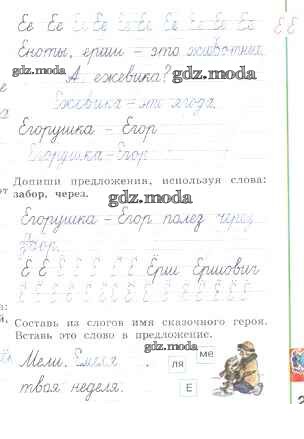 Ее Ее Ее Ее Ее Ее Ее Ее Ё Ё
Еноты, ерши – это животные.
gdz.moda
А ежевика?
gdz.moda
Ежевика – это ягода.
Егорушка – Егор
Егорушка – Егор
Допиши предложения, используя слова:
забор, через.
gdz.moda
Егорушка – Егор полез через
забор.
Ё Ё Ё Ё Ё Ё Ё Ёрш Ершович
Ё Ё Ё Ё Ё Ё Ё Ё Ё Ё Ё Ё Ё
Составь из слогов имя сказочного героя.
Вставь это слово в предложение.
gdz.moda
Мели, Емеля,
твоя неделя.
ля ме
Е